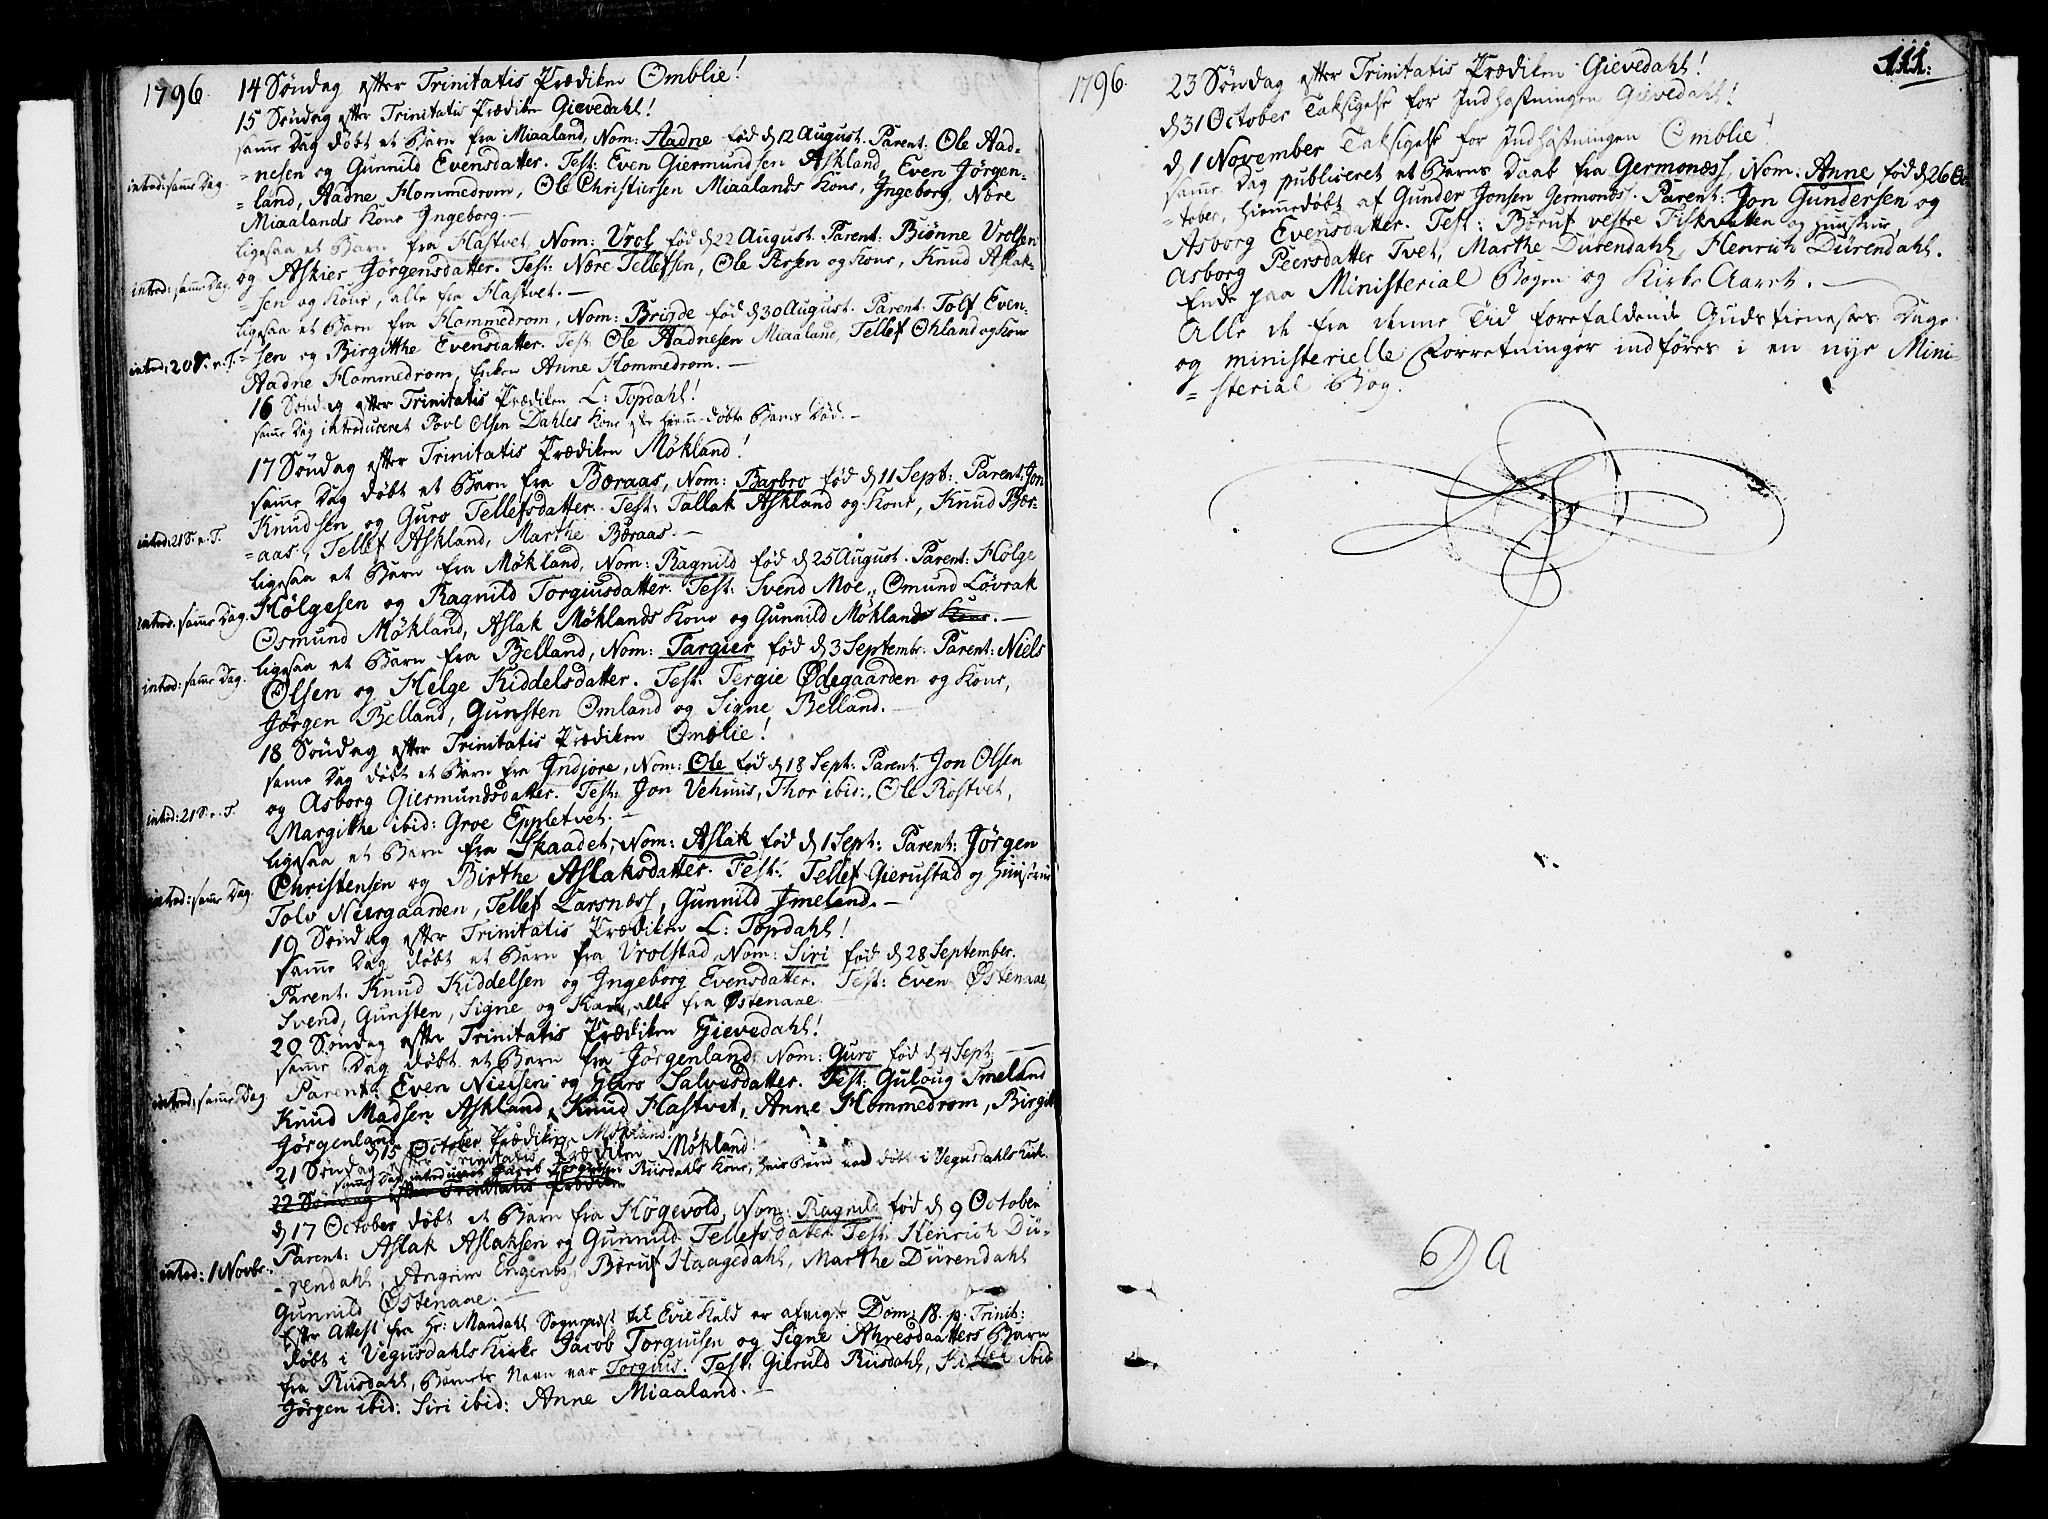 1796.
14 Søndag efter Trinitatis Prædiken Omblie!
15 Søndag efter Trinitatis Prædiken Gievedahl!
samme Dag døbt et Barn fra Miaaland, Nom: Aadne fød d 12 August. Parent: Ole Aad-
intrd: samme Dag.
=nesen og Gunnild Evensdatter. Test: Even Giermundsen Askland, Even Jørgen-
=land, Aadne Hommedrom, Ole Christensen Miaalands Kone, Ingeborg, Nære
Miaalands Kone Ingeborg. —
ligesaa et Barn fra Hastvet, Nom: Vrol fød d 22 August. Parent: Biønne Vrolsen
intrd: samme Dag.
og Askier Jørgensdatter. Test: Nære Tellefsen, Ole Arsen og Kone, Knud Aslak-
sen og Kone, alle fra Hastvet. —
ligesaa et Barn fra Hommedrom, Nom: Brigde fød d 30 August. Parent: Tolf Even-
intrd: 20 S. e. T.
=sen og Birgitthe Evensdatter. Test: Ole Aadnesen Miaaland, Tellef Ohland og Kone
Aadne Hommedrom, Enken Anne Hommedrom. —
16 Søndag efter Trinitatis Prædiken L: Topdahl!
samme Dag introduceret Povl Olsen Dahles Kone efter hiemme-døbte Barns Død. —
17 Søndag efter Trinitatis Prædiken Møkland!
samme Dag døbt et Barn fra Børaas, Nom: Barbro fød d 11 Sept: Parent: Jon
Knudsen og Guro Tellefsdatter. Test: Tallak Askland og Kone, Knud Bør-
intrd: 21 S. e. T.
=aas, Tellef Askland, Marthe Børaas. —
ligesaa et Barn fra Møkland, Nom: Ragnild fød d 25 August. Parent: Hølge
intrd: samme Dag.
Hølgesen og Ragnild Torgiusdatter. Test: Svend Moe, Omund Løvrak
Osmund Møkland, Aslak Møklands Kone og Gunnild Møkland Kone. —
ligesaa et Barn fra Belland, Nom: Targier fød d 3 Septembr: Parent: Niels
intrd: samme Dag.
Olsen og Helge Kiddelsdatter. Test: Tergie Ødegaarden og Kone,
Jørgen Belland, Gunsten Omland og Signe Belland. —
18 Søndag efter Trinitatis Prædiken Omblie!
samme Dag døbt et Barn fra Indjore, Nom: Ole fød d 18 Sept: Parent: Jon Olsen
og Asborg Giermundsdatter. Test: Jon Vehuus, Thor ibid:, Ole Røstvet,
intrd: 21 S. e. T.
Margitthe ibid: Groe Eppletvet. —
ligesaa et Barn fra Skaadet, Nom: Aslak fød d 1 Sept: Parent: Jørgen
Christensen og Birthe Aslaksdatter. Test: Tellef Gierustad og Huustrue
intrd: samme Dag.
Tolv Neergaarden, Tellef Larsnæss, Gunnild Imeland. —
19 Søndag efter Trinitatis Prædiken L: Topdahl!
samme Dag døbt et Barn fra Vrolstad, Nom: Siri fød d 28 September.
Parent: Knud Kiddelsen og Ingeborg Evensdatter. Test: Even Østenaae,
Svend, Gunsten, Signe og Kari, alle fra Østenaae.
20 Søndag efter Trinitatis Prædiken Gievedahl!
samme Dag døbt et Barn fra Jørgenland, Nom: Guro fød d 4 Sept: —
intrd: samme Dag.
Parent: Even Nielsen og Guro Salvesdatter. Test: Guloug Imeland
Knud Madsen Askland, Knud Hastvet, Anne Hommedrom, Birgit
Jørgenland
d 15 October Prædiken Møkland!
21 Søndag efter Trinitatis Prædiken Møkland!
samme Dag introduceret Jacob Torgiusen Riisdahls Kone, hvis Barn var døbt i Vegusdahls Kirk.
22 Søndag efter Trinitatis Prædiken
d 17 October døbt et Barn fra Høgevold, Nom: Ragnild fød d 9 October
intrd: 1 Novbr.
Parent: Aslak Aslaksen og Gunnild Tellefsdatter. Test: Henrich Dü-
=rendahl, Angrim Engenæs, Børuf Haagedahl, Marthe Dürendahl
Gunnild Østenaae. —
Efter Attest fra Hr: Mandahl Sognepræst til Evie Kald er afvigte Dom: 18. p. Trinit:
døbt i Vegusdahls Kirke Jacob Torgiusen og Signe Ahresdaatters Barn
fra Riisdahl, Barnets Navn var Torgius. Test: Gieruld Riisdahl, Kittel ibid:
Jørgen ibid: Siri ibid: Anne Miaaland. —
111.
1796.
23 Søndag efter Trinitatis Prædiken Gievedahl!
d 31 October Taksigelse for Indhøstningen Gievedahl!
d 1 November Taksigelse for Indhøstningen Omblie!
samme Dag publiceret et Barns Daab fra Germonæss, Nom: Anne, fød d 26 Oc-
=tober, hiemmedøbt af Gunder Jonsen Germonæs. Parent: Jon Gundersen og
Asborg Evensdatter. Test: Børuf vestre Fiskvatten og Huustrue,
Asborg Peersdatter Tvet, Marthe Dürendahl, Henrich Dürendahl.
Ende paa Ministerial Bogen og Kirke Aaret. —
Alle de fra denne Tid forefaldende Gudstienestes Dage
og ministerielle Forretninger indføres i en nye Mini-
=sterial Bog.
Da